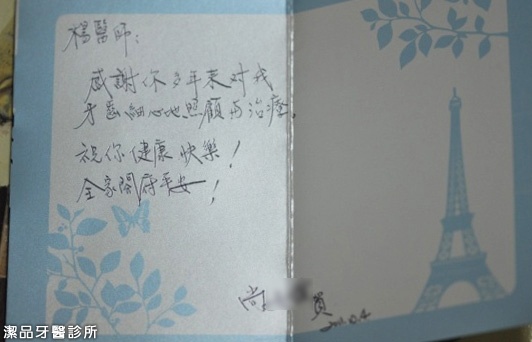 楊醫師：
感謝你多年来对我
牙齒細心地照顧与治療。
祝你健康快樂！
全家閤府平安！
尚
賀
潔品牙醫診所